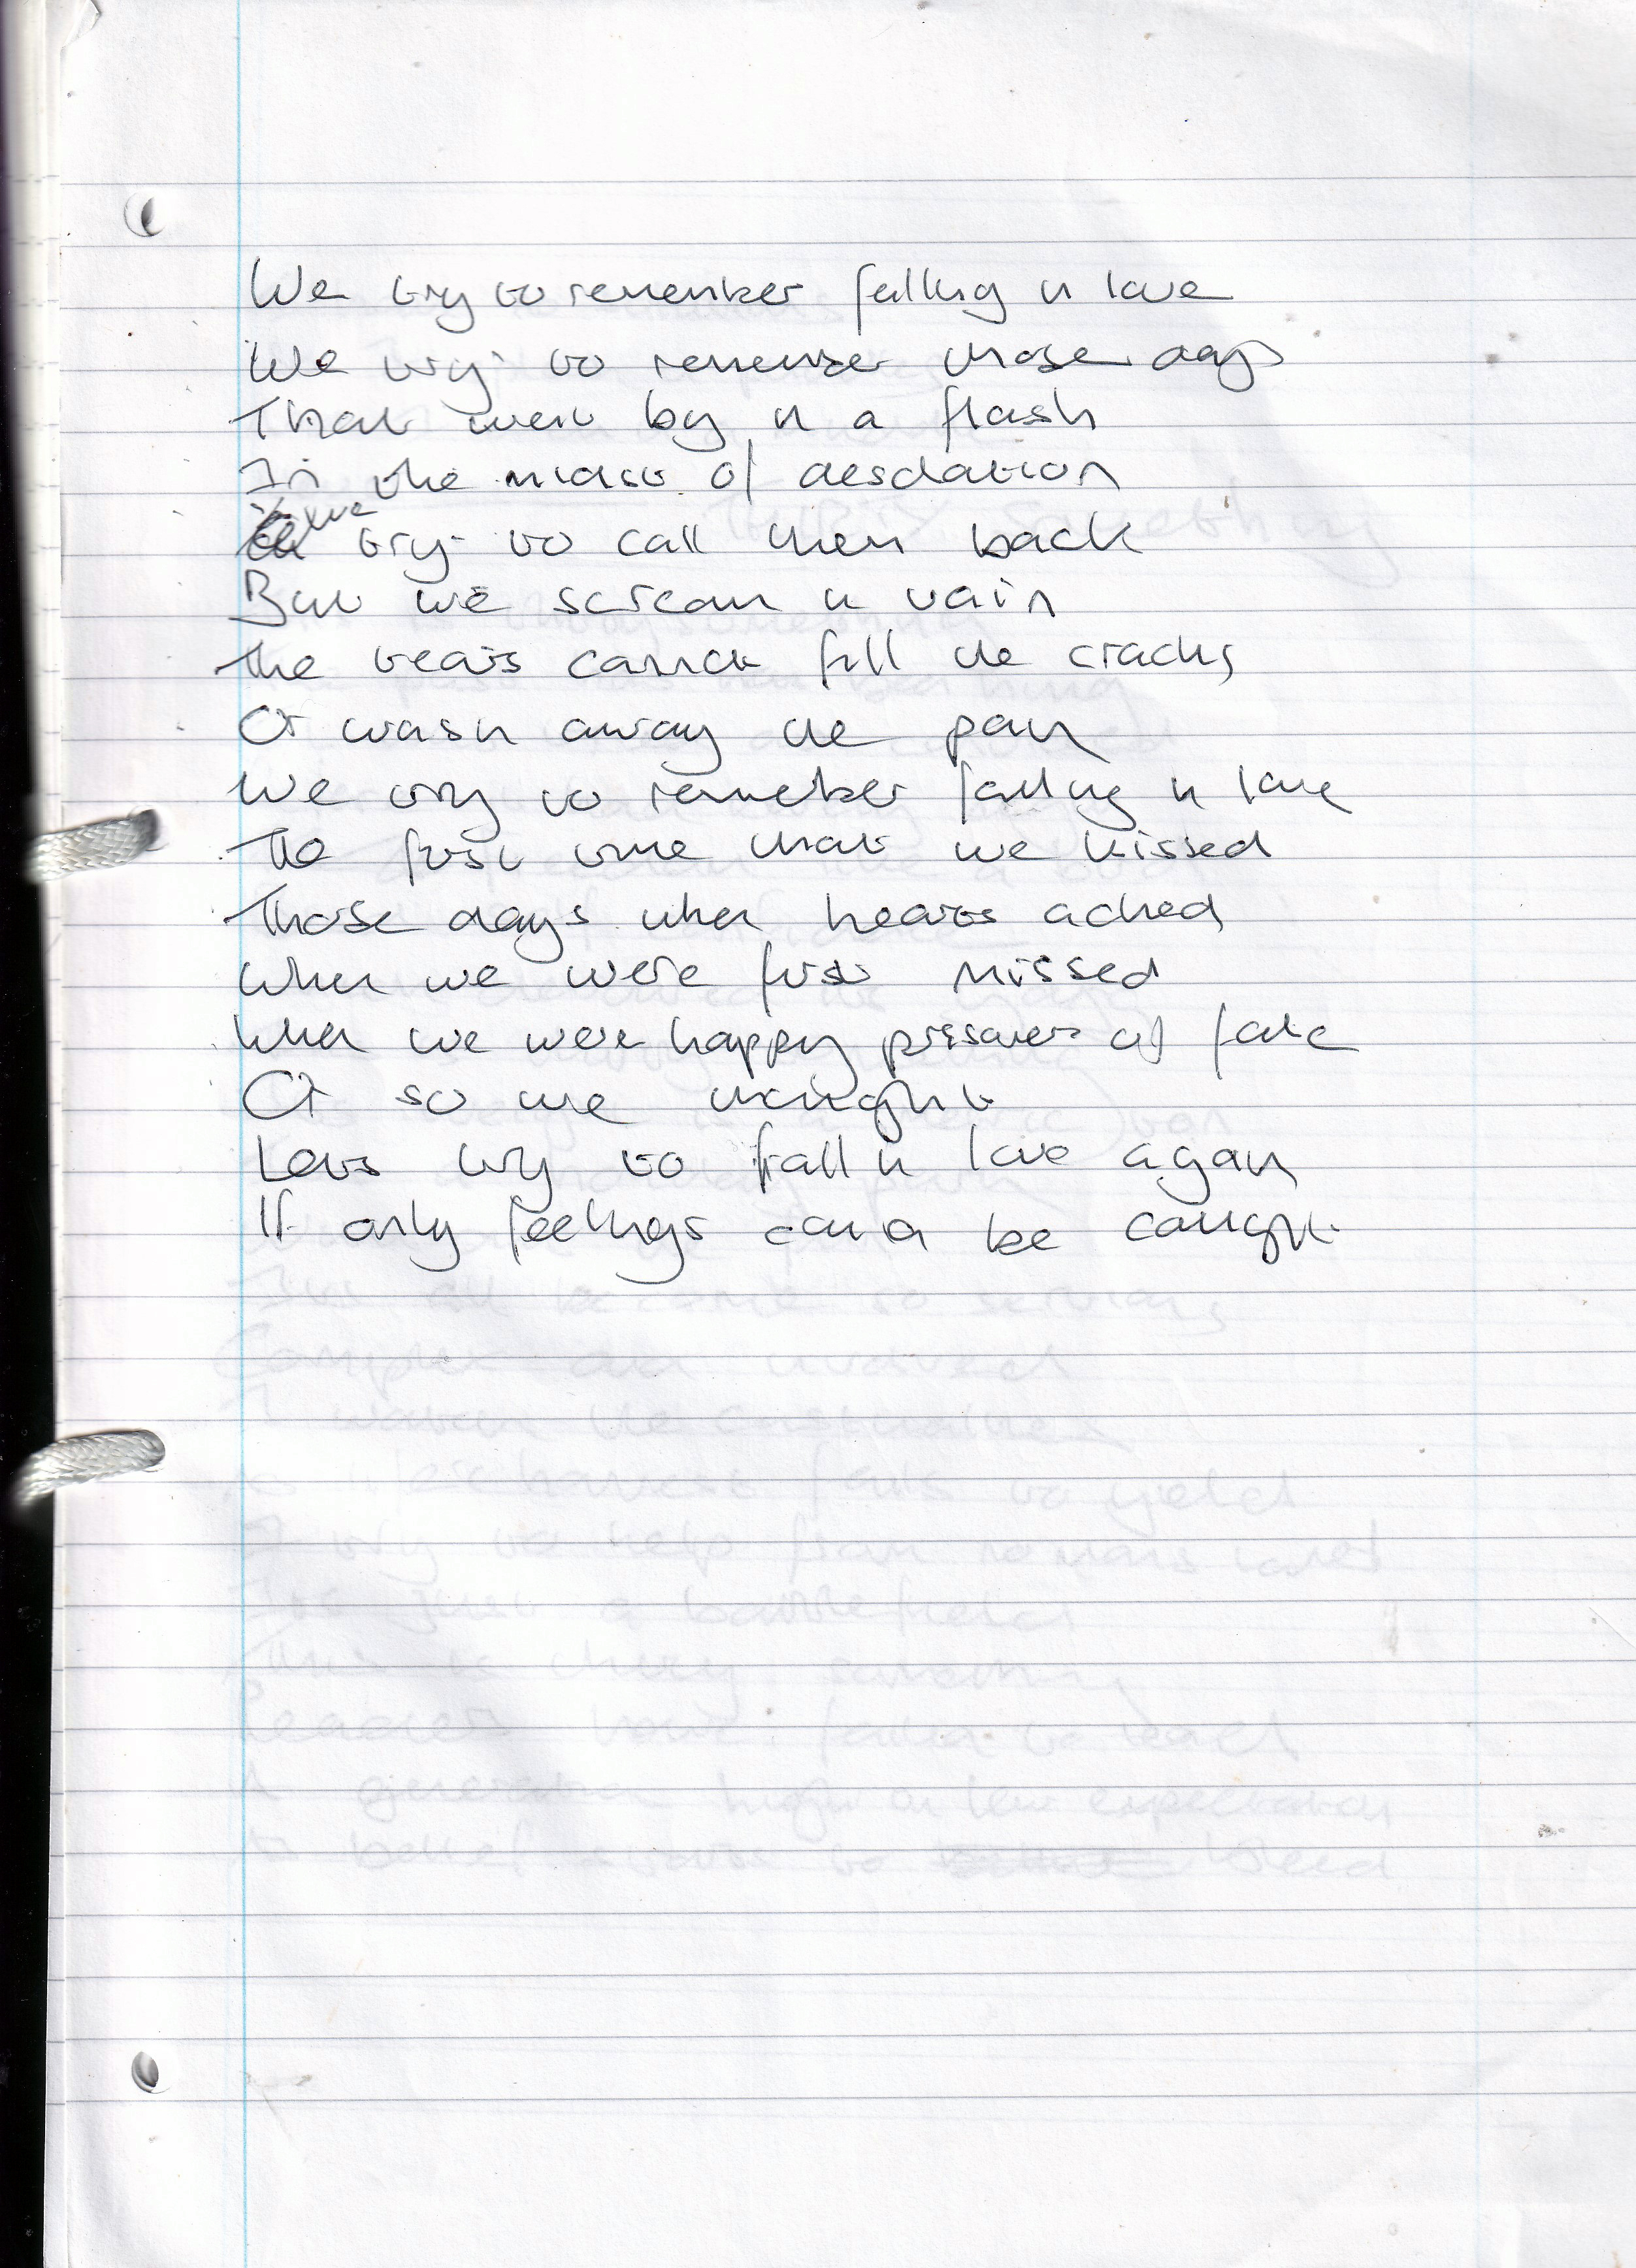 We try to remember falling in love
We try to remember those days
That went by in a flash
In the midst of desolation
we try to call them back
But we scream in vain
The tears cannot fill the cracks
Or wash away the pain
We try to remember falling in love
The first time that we kissed
Those days when hearts ached
When we were first missed
When we were happy prisoners of fate
Or so we thought
Lets try to fall in love again
If only feelings could be caught